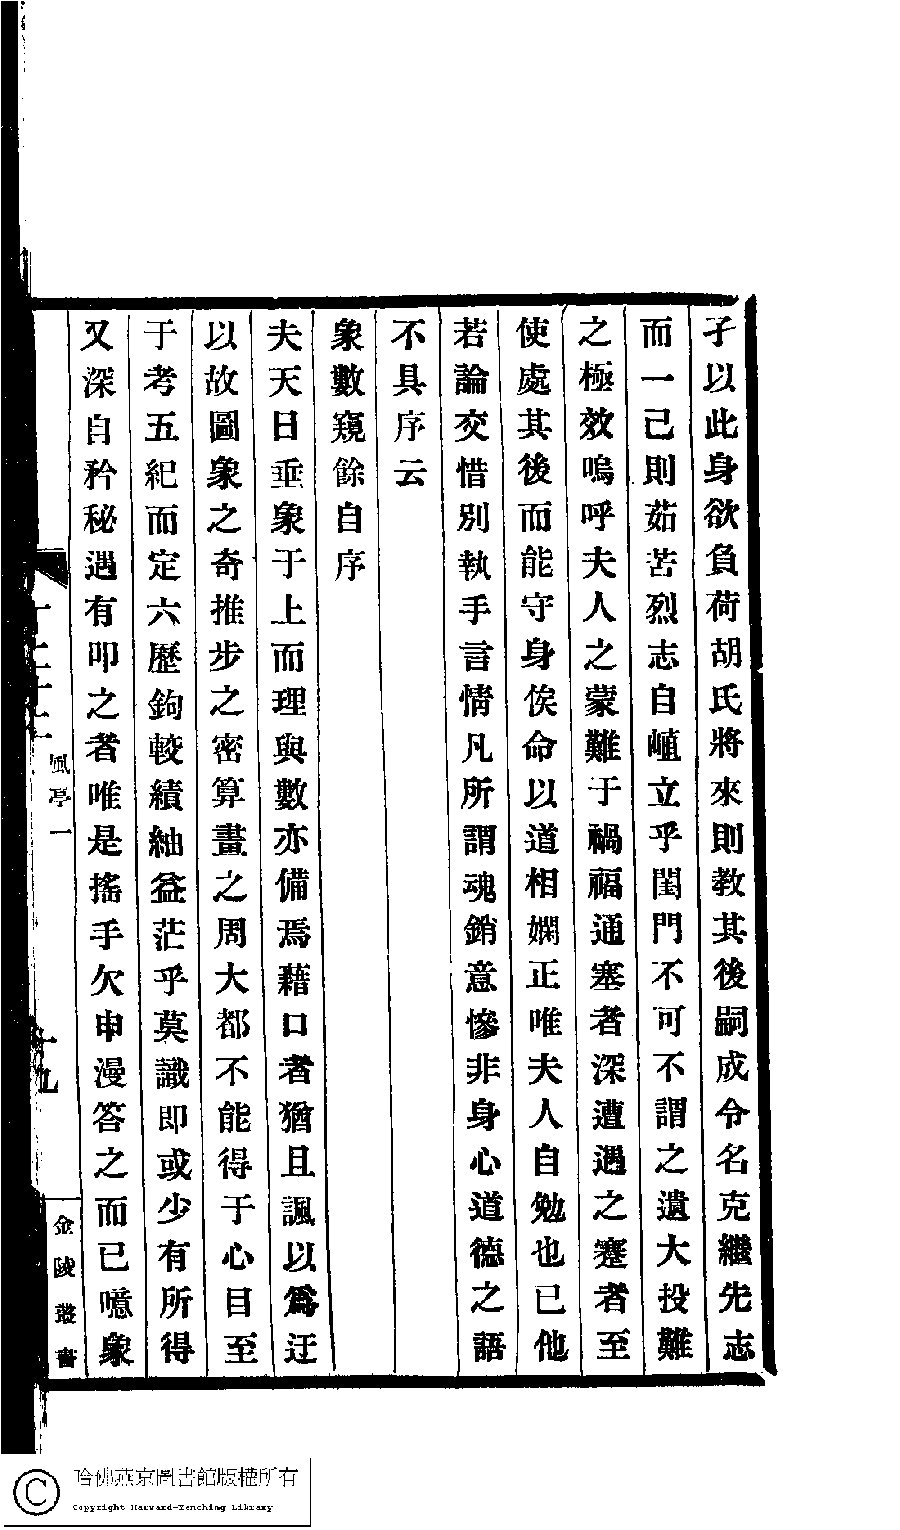 孑以此身欲負荷胡氏將來則教其後嗣成令名克繼先志
而一己則茹苦烈志自矗立乎閨門不可不謂之遺大投難
之極效嗚呼夫人之蒙難于禍福通塞者深遭遇之蹇者至
使處其後而能守身俟命以道相嫻正唯夫人自勉也已他
若論交惜別執手言情凡所謂魂銷意慘非身心道德之語
不具序云
象數窺餘自序
夫天日垂象于上而理與數亦備焉藉口者猶且諷以爲迂
以故圖象之奇推步之密算畫之周大都不能得于心目至
于考五紀而定六歷鉤較績紬益茫乎莫識即或少有所得
又深自矜秘遇有叩之者唯是搖手欠申漫答之而已噫象
風亭一
十九
金陵叢書
哈佛燕京圖書館版權所有
Copyright Harvard-Yenching Library